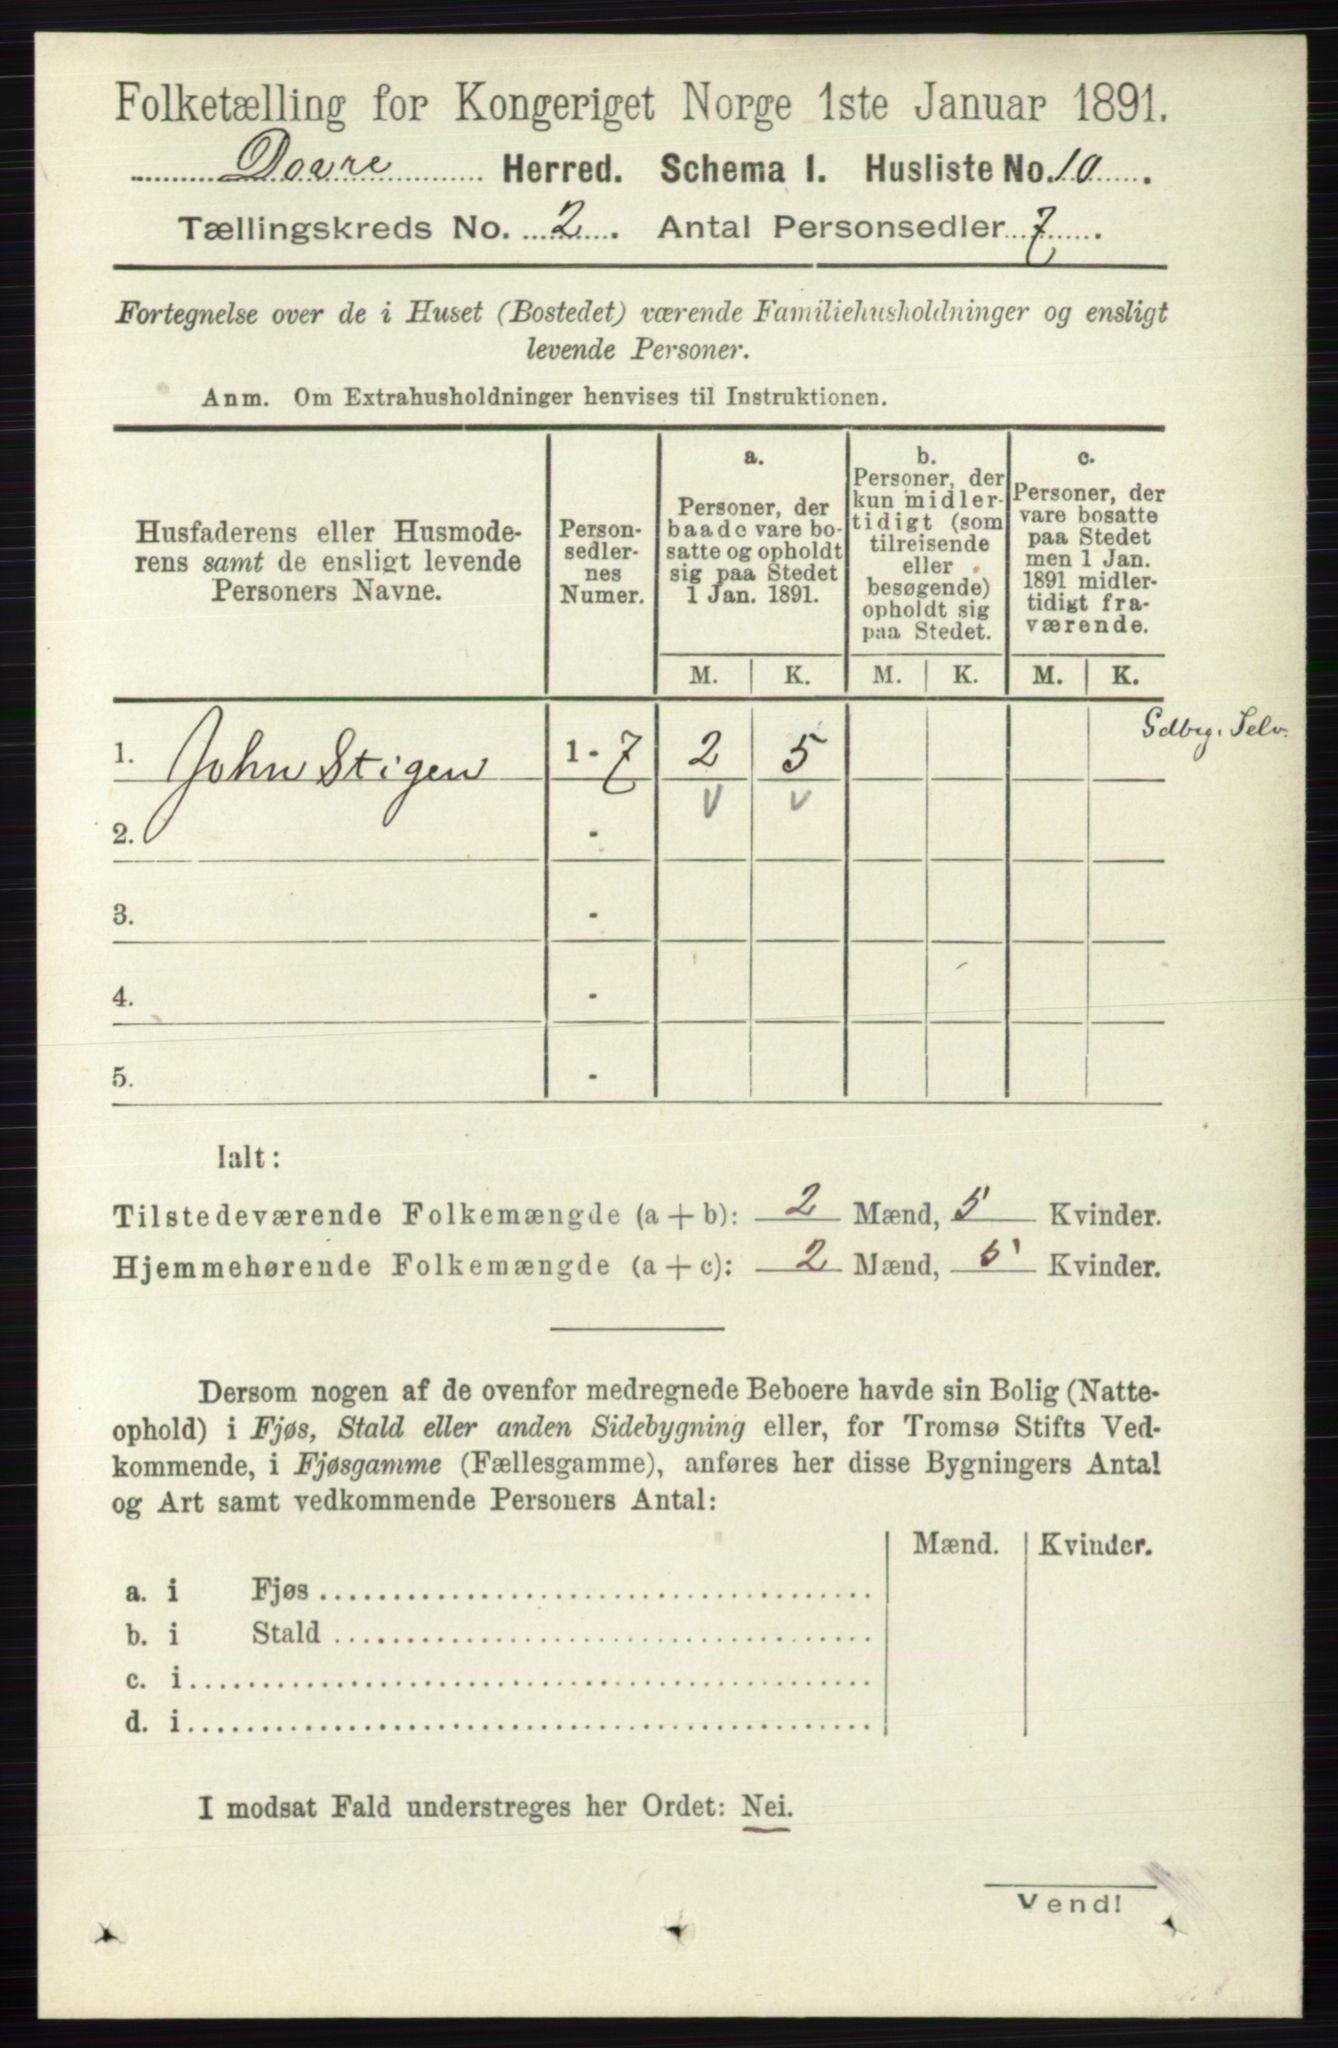 Folketælling for Kongeriget Norge 1ste Januar 1891.
Dovre Herred. Schema I. Husliste No. 10.
Tællingskreds No. 2. Antal Personsedler 7.
Fortegnelse over de i Huset (Bostedet) værende Familiehusholdninger og ensligt
levende Personer.
Anm. Om Extrahusholdninger henvises til Instruktionen.
Husfaderens eller Husmode-
rens samt de ensligt levende
Personers Navne.
Person-
sedler-
nes
Numer.
a.
Personer, der
baade vare bo-
satte og opholdt
sig paa Stedet
1 Jan. 1891.
b.
Personer, der
kun midler-
tidigt (som
tilreisende
eller
besøgende)
opholdt sig
paa Stedet.
c.
Personer, der
vare bosatte
paa Stedet
men 1 Jan.
1891 midler-
tidigt fra-
værende.
M. K. M. K. M. K.
Gdbrg. Selv.
1. John Stigen 1 - 7 2 5
2. -
3. -
4. -
5. -
Ialt:
Tilstedeværende Folkemængde (a + b): 2 Mænd, 5 Kvinder.
Hjemmehørende Folkemængde (a + c): 2 Mænd, 5 Kvinder.
Dersom nogen af de ovenfor medregnede Beboere havde sin Bolig (Natte-
ophold) i Fjøs, Stald eller anden Sidebygning eller, for Tromsø Stifts Ved-
kommende, i Fjøsgamme (Fællesgamme), anføres her disse Bygningers Antal
og Art samt vedkommende Personers Antal:
Mænd. Kvinder.
a. i Fjøs
b. i Stald
c. i
d. i
I modsat Fald understreges her Ordet: Nei.
Vend!